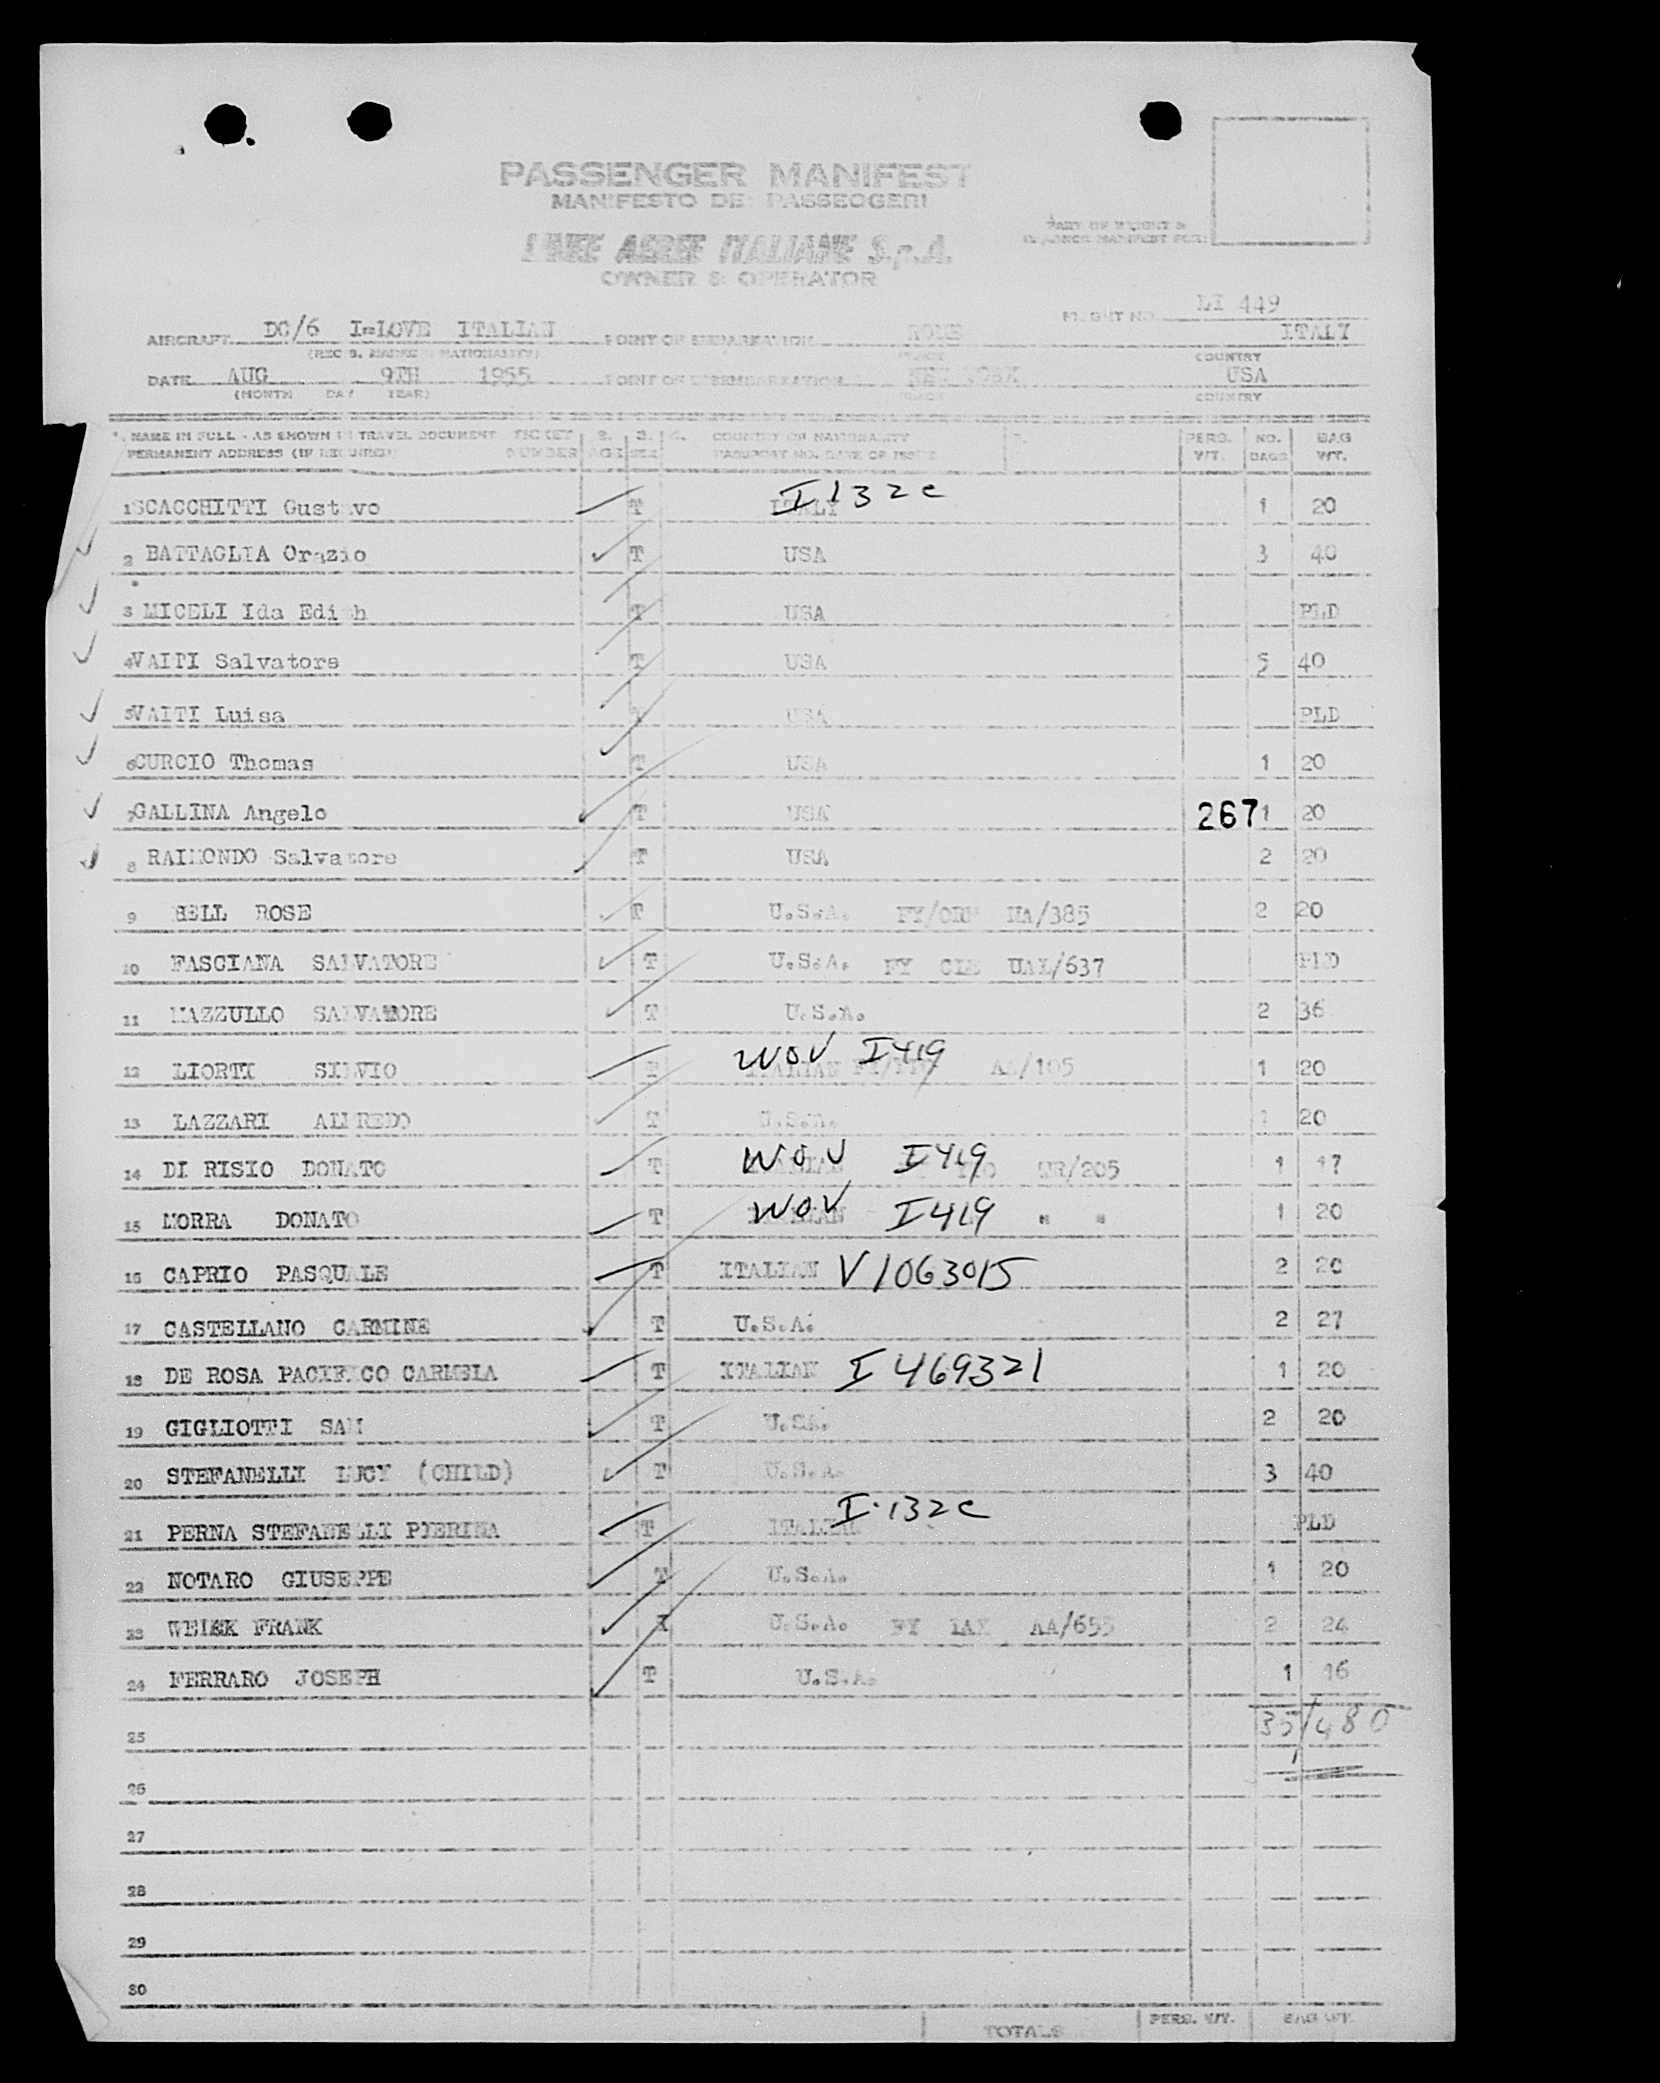 PASSENGER MANIFEST
MANIFESTO DEI PASSEOGERI
LINEE AEREE ITALIANE S.p.A.
OWNER & OPERATOR
PART OF WEIGHT &
BALANCE MANIFEST FOR:
FLIGHT NO. LI 449
AIRCRAFT DC/6 I-LOVE ITALIAN POINT OF EMBARKATION ROME ITALY
(REG'S. MARKS NATIONALITY) PLACE COUNTRY
DATE AUG 9TH 1955 POINT OF DISEMBARKATION NEW YORK USA
(MONTH DAY YEAR) PLACE COUNTRY
1. NAME IN FULL - AS SHOWN IN TRAVEL DOCUMENT TICKET 2. 3. 4. COUNTRY OF NATIONALITY PERS. NO. BAG
PERMANENT ADDRESS (IF REQUIRED) NUMBER AGE SEX PASSPORT NO. DATE OF ISSUE WT. BAGS WT.
1 SCACCHITTI Gustavo T ITALY I 132c 1 20
2 BATTAGLIA Orazio T USA 3 40
3 MICELI Ida Edith T USA PLD
4 VAITI Salvatore T USA 5 40
5 VAITI Luisa T USA PLD
6 CURCIO Thomas T USA 1 20
7 GALLINA Angelo T USA 267 1 20
8 RAIMONDO Salvatore T USA 2 20
9 HELL ROSE T U.S.A. FY/ORD UA/385 2 20
10 FASCIANA SALVATORE T U.S.A. FY CLE UAL/637 PLD
11 MAZZULLO SALVATORE T U.S.A. 2 36
12 LIORTI SILVIO T ITALIAN WOV I419 AA/105 1 20
13 LAZZARI ALFREDO T U.S.A. 1 20
14 DI RISIO DONATO T ITALIAN WOV I419 /205 1 17
15 MORRA DONATO T ITALIAN WOV I419 " " 1 20
16 CAPRIO PASQUALE T ITALIAN V1063015 2 20
17 CASTELLANO CARMINE T U.S.A. 2 27
18 DE ROSA PACIFICO CARMELA T ITALIAN I 469321 1 20
19 GIGLIOTTI SAM T U.SA. 2 20
20 STEFANELLI LUCY (CHILD) T U.S.A. 3 40
21 PERNA STEFANELLI PIERINA T ITALIAN I-132c PLD
22 NOTARO GIUSEPPE T U.S.A. 1 20
23 FRANK U.S.A. FY LAX AA/655 2 24
24 FERRARO JOSEPH T U.S.A. 1 16
25 35/480
26
27
28
29
30
TOTALS PERS. WT. BAG WT.